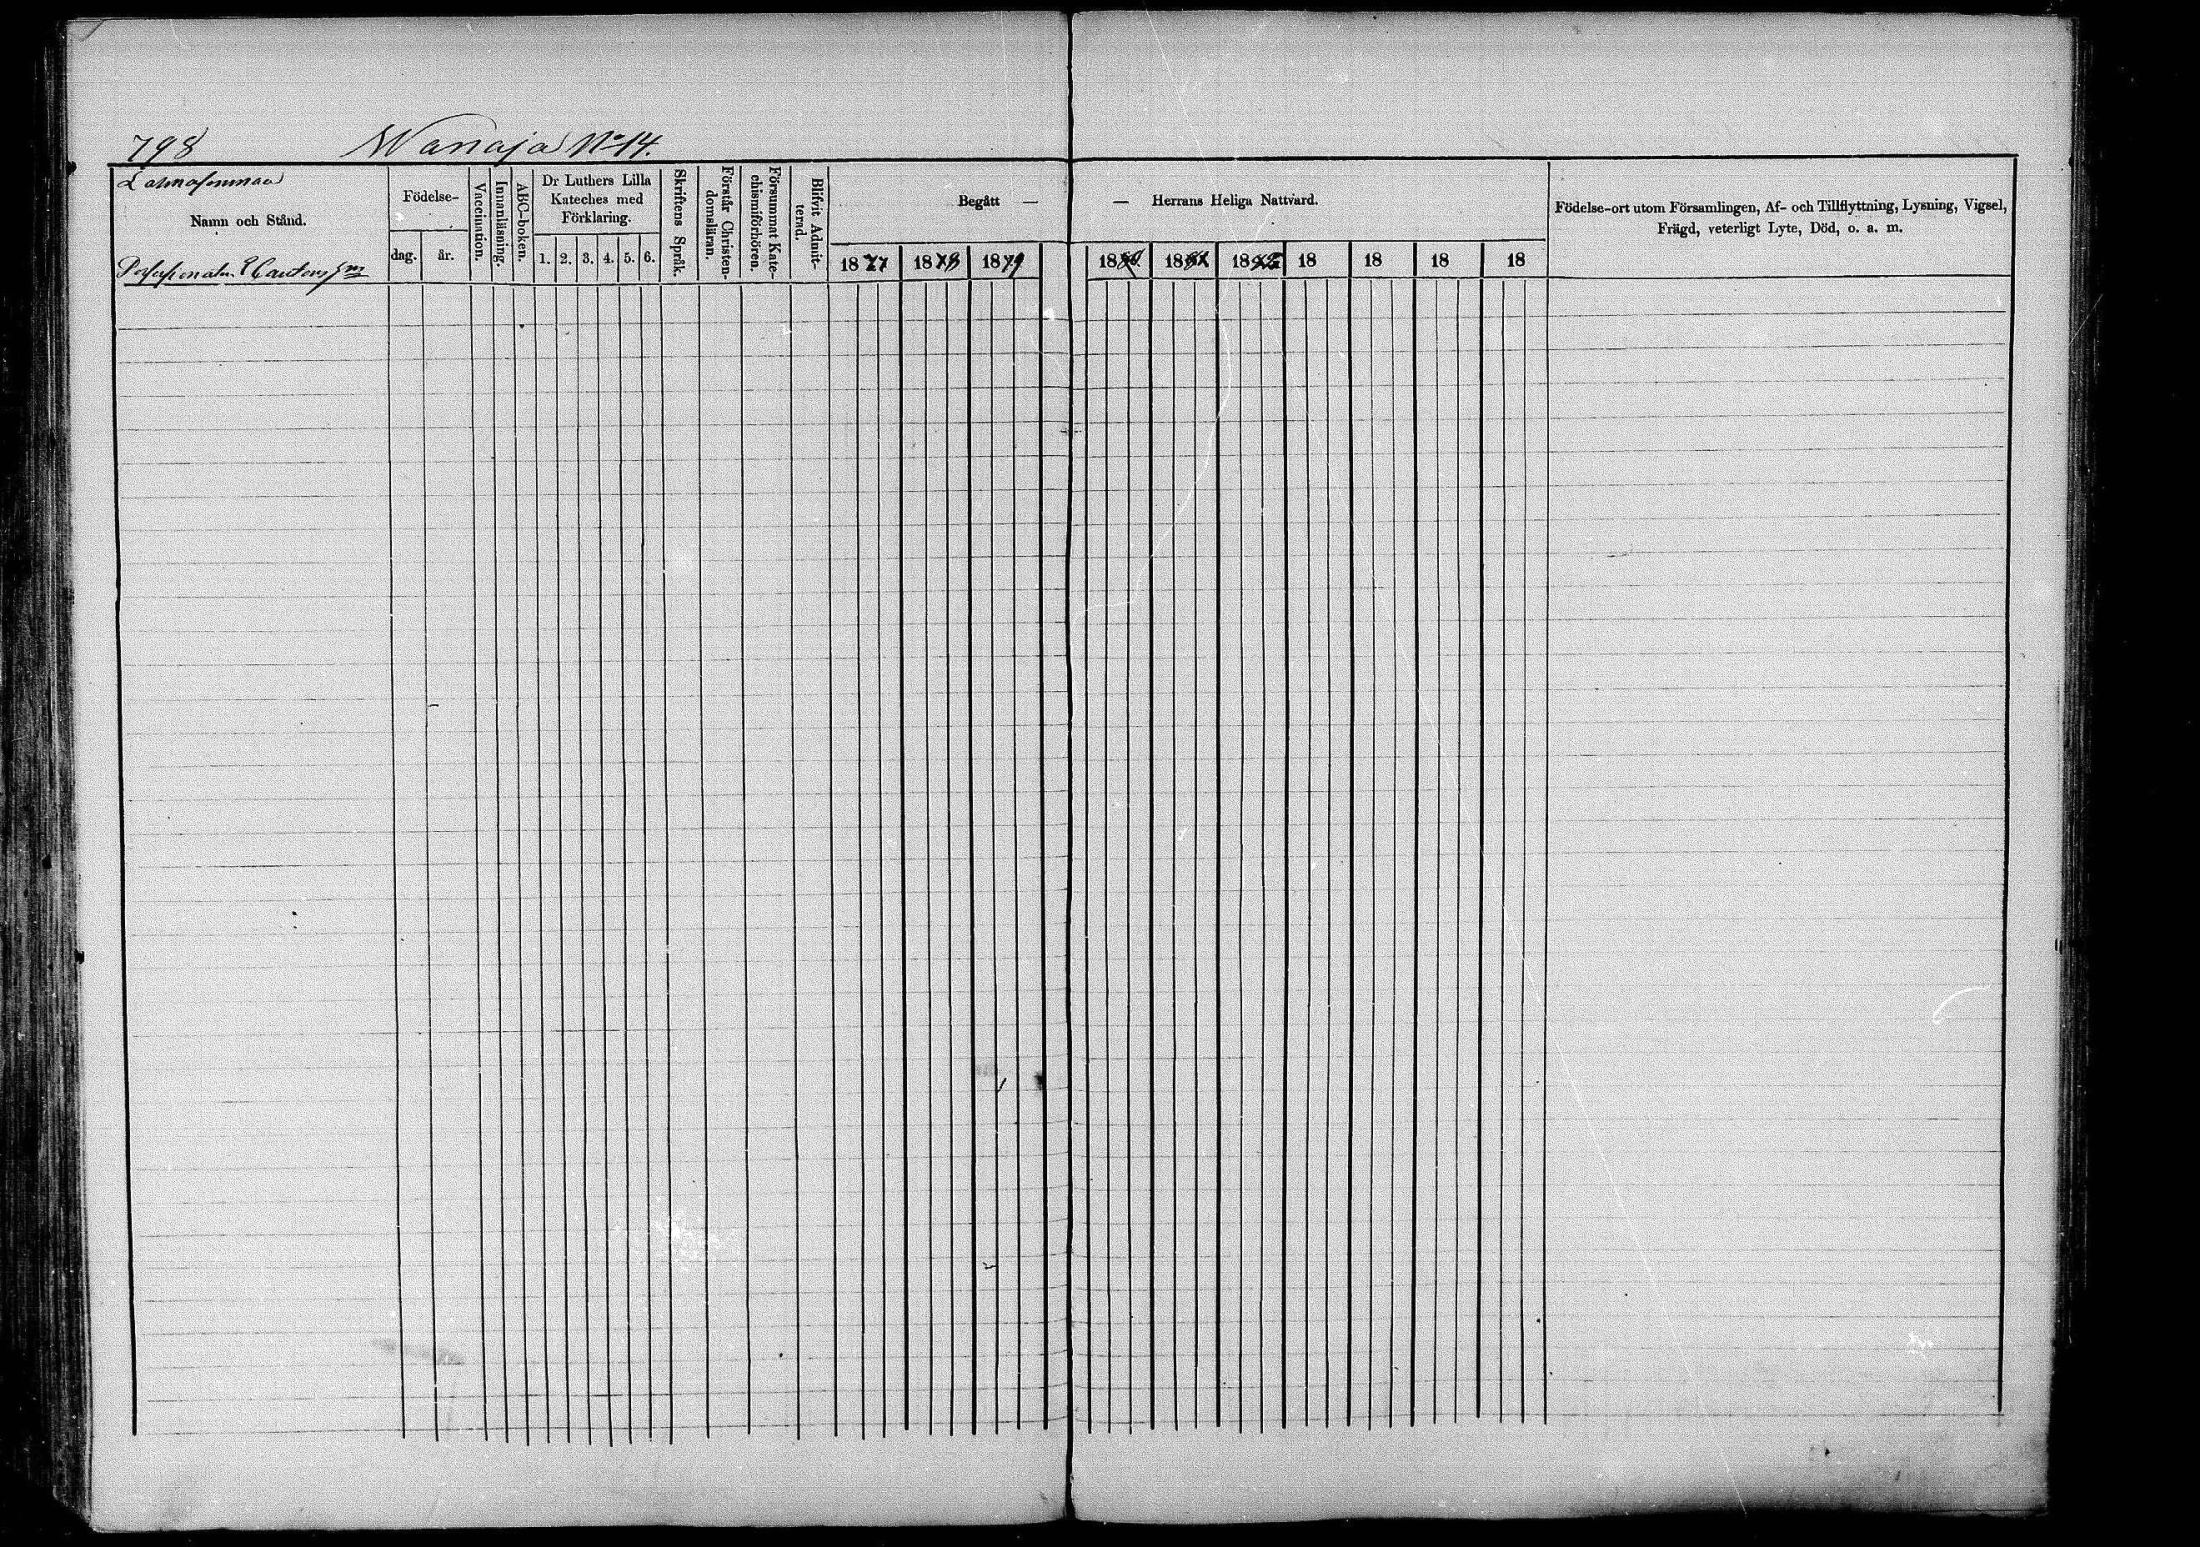 798 Wanaja No 14.
Namn och Stånd.
Födelse-
dag.
år.
Vaccination.
Innanläsning.
ABC-boken.
Dr Luthers Lilla
Kateches med
Förklaring.
1. 2. 3. 4. 5. 6.
Skriftens Språk.
Förstår Christen-
domsläran.
Försummat Kate-
chismiförhören.
Blifvit Admit-
terad.
Begått —
— Herrans Heliga Nattvard.
1877 1878 1879
1880. 1881 18 18 18 18 18
Födelse-ort utom Församlingen, Af- och Tillflyttning, Lysning, Vigsel,
Frägd, veterligt Lyte, Död, o. a. m.